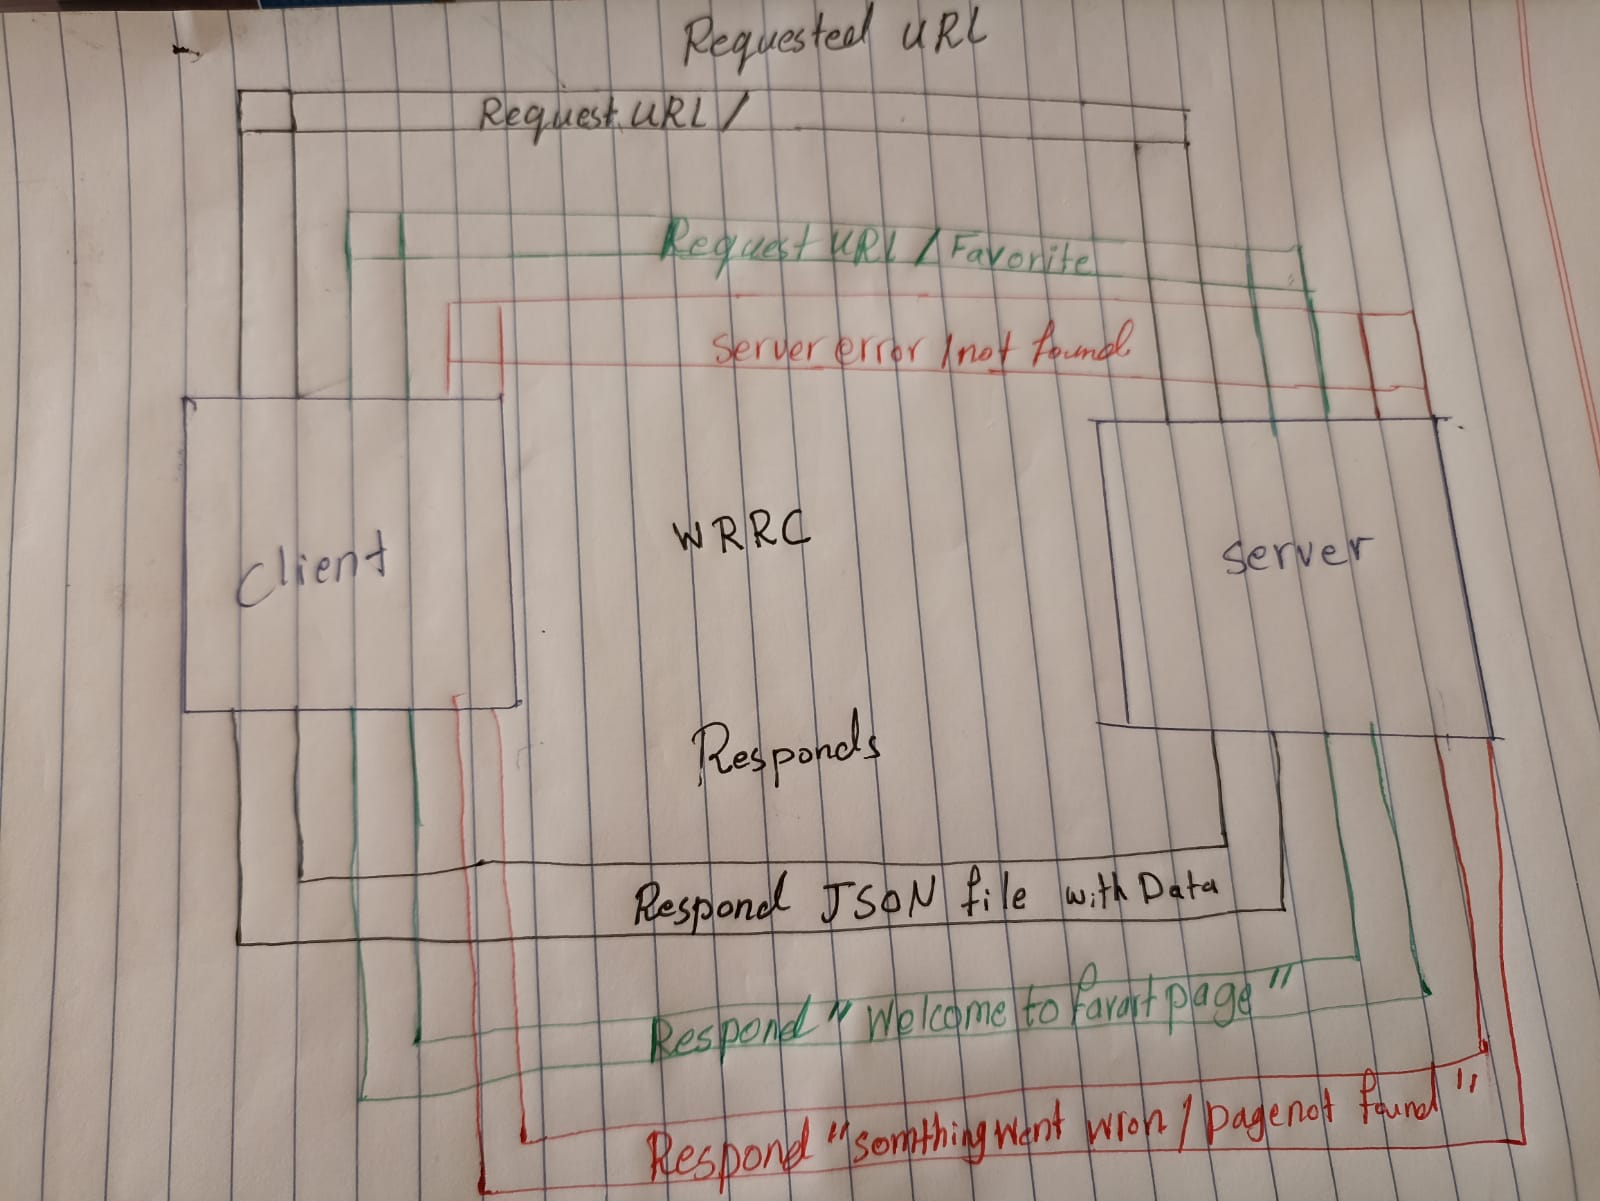 Requested URL
Request URL /
Request URL / Favorite
Server error / not found
Client
WRRC
Server
Responds
Respond JSON file with Data
Respond "Welcome to favort page"
Respond "somthing went wron / page not found"